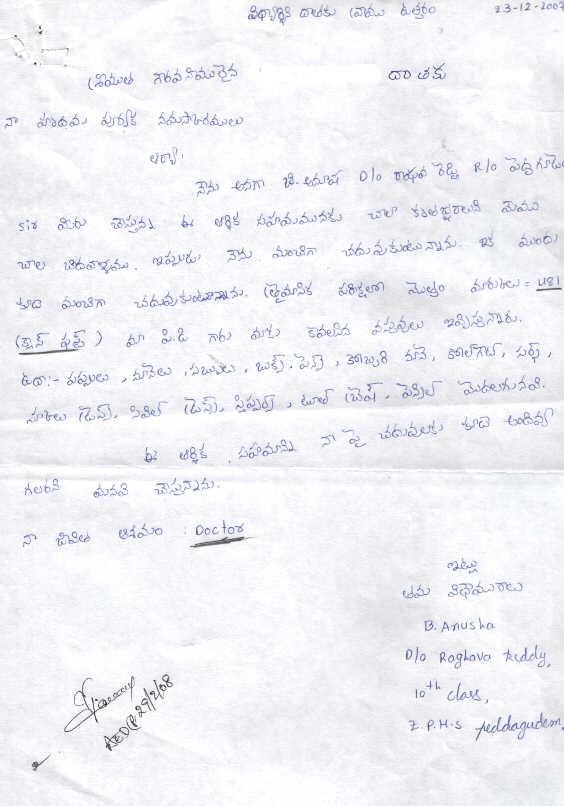 విద్యార్థిని దాతకు వ్రాయు ఉత్తరం 23-12-2007
శ్రీయుత గౌరవనీయులైన దాతకు
నా హృదయ పూర్వక నమస్కారములు
ఆర్యా!
నేను అనగా బి. అనూష D/o రాఘవ రెడ్డి R/o పెద్దగూడెం
sir మీరు చేస్తున్న ఈ ఆర్థిక సహాయమునకు చాలా కృతజ్ఞురాలుని మేము
చాల బీదవాళ్ళము. ఇప్పుడు నేను మంచిగా చదువుకుంటున్నాను. ఇక ముందు
కూడ మంచిగా చదువుకుంటాను. (త్రైమాసిక పరీక్షలలో మొత్తం మార్కులు = 481
(క్లాస్ ఫస్ట్) మా పి.డి గారు మాకు కావలసిన వస్తువులు ఇప్పిస్తున్నారు.
ఉదా:- పప్పులు, నూనెలు, సబ్బులు, బుక్స్, పెన్స్, కొబ్బరి నూనె, కోల్‌గేట్, సర్ఫ్,
స్కూలు డ్రెస్, సివిల్ డ్రెస్, స్లిప్పర్స్, టూత్ బ్రష్, పెన్సిల్ మొదలగునవి.
ఈ ఆర్థిక సహాయాన్ని నా పై చదువులకు కూడా అందివ్వ
గలరని మనవి చేస్తున్నాను.
నా జీవిత ఆశయం : Doctor
ఇట్లు
తమ విధేయురాలు
B. Anusha
D/o Raghava Reddy,
10th class,
Z.P.H.S peddagudem.
AED 29/2/08